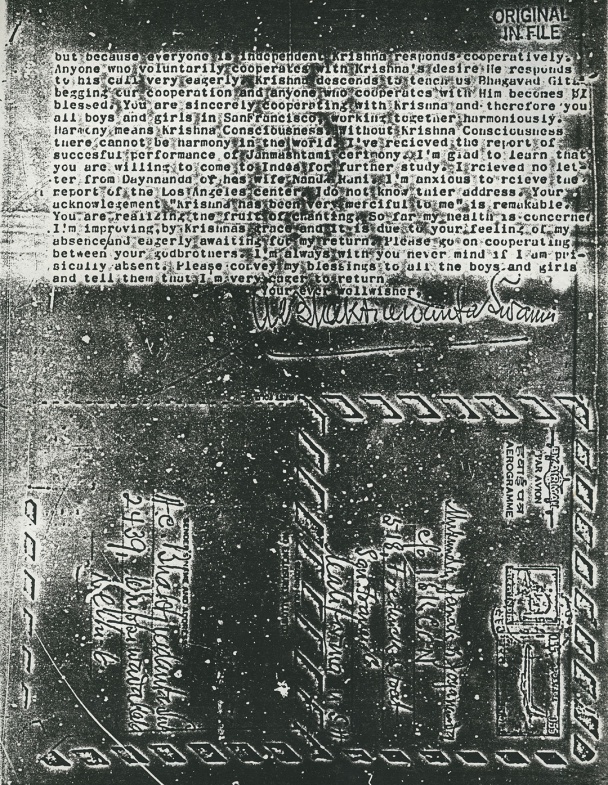 ORIGINAL
IN FILE
but because everyone is independent Krishna responds cooperatively.
Anyone who voluntarily cooperates with Krishna's desire He responds
to his call very eagerly. Krishna descends to teach us Bhagavad Giti
begging our cooperation and anyone who cooperates with Him becomes
blessed. You are sincerely cooperating with Krishna and therefore you
all boys and girls in SanFrancisco working together harmoniously.
Harmony means Krishna Consciousness. Without Krishna Consciousness
there cannot be harmony in the world. I've recieved the report of
succesful performance of Janmashtami cerimony. I'm glad to learn that
you are willing to come to India for further study. I recieved no let-
ter from Dayananda or his wife Nanda Rani. I'm anxious to rcieve the
report of the Los Angeles center. I do not know thier address. Your
acknowlegement "Krishna has been very merciful to me" is remarkable.
You are realizing the fruit of chanting. So far my health is concerned
I'm improving by Krishnas grace and it is due to your feeling of my
absence and eagerly awaiting for my return. Please go on cooperating
between your godbrothers. I'm always with you never mind if I am phi-
sically absent. Please convey my blessings to all the boys and girls
and tell them that I'm very eager to return.
Your ever wellwisher,
A.C. Bhaktivedanta Swami
PAR AVION
AEROGRAMME
c/o ISKCON
518 Frederick Street
San Francisco
California
U.S.A.
A.C. Bhaktivedanta Swami
2439
Delhi 6